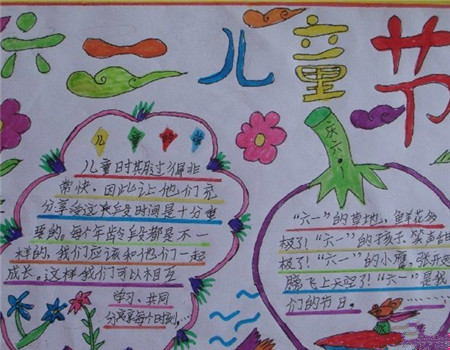 六一儿童节
儿童时期过得非
常快。因此让他们充
分享给这段时间是十分重
要的，每个年龄段都是不一
样的，我们应该和他们一起
成长。这样我们可以相互
学习、共同
分享每个时刻……
庆六一
“六一”的草地山，鲜花多
极了！“六一”的孩子、笑声甜
极了！“六一”的小鹰，张开翅
膀飞上天空了！“六一”是我
们的节日。